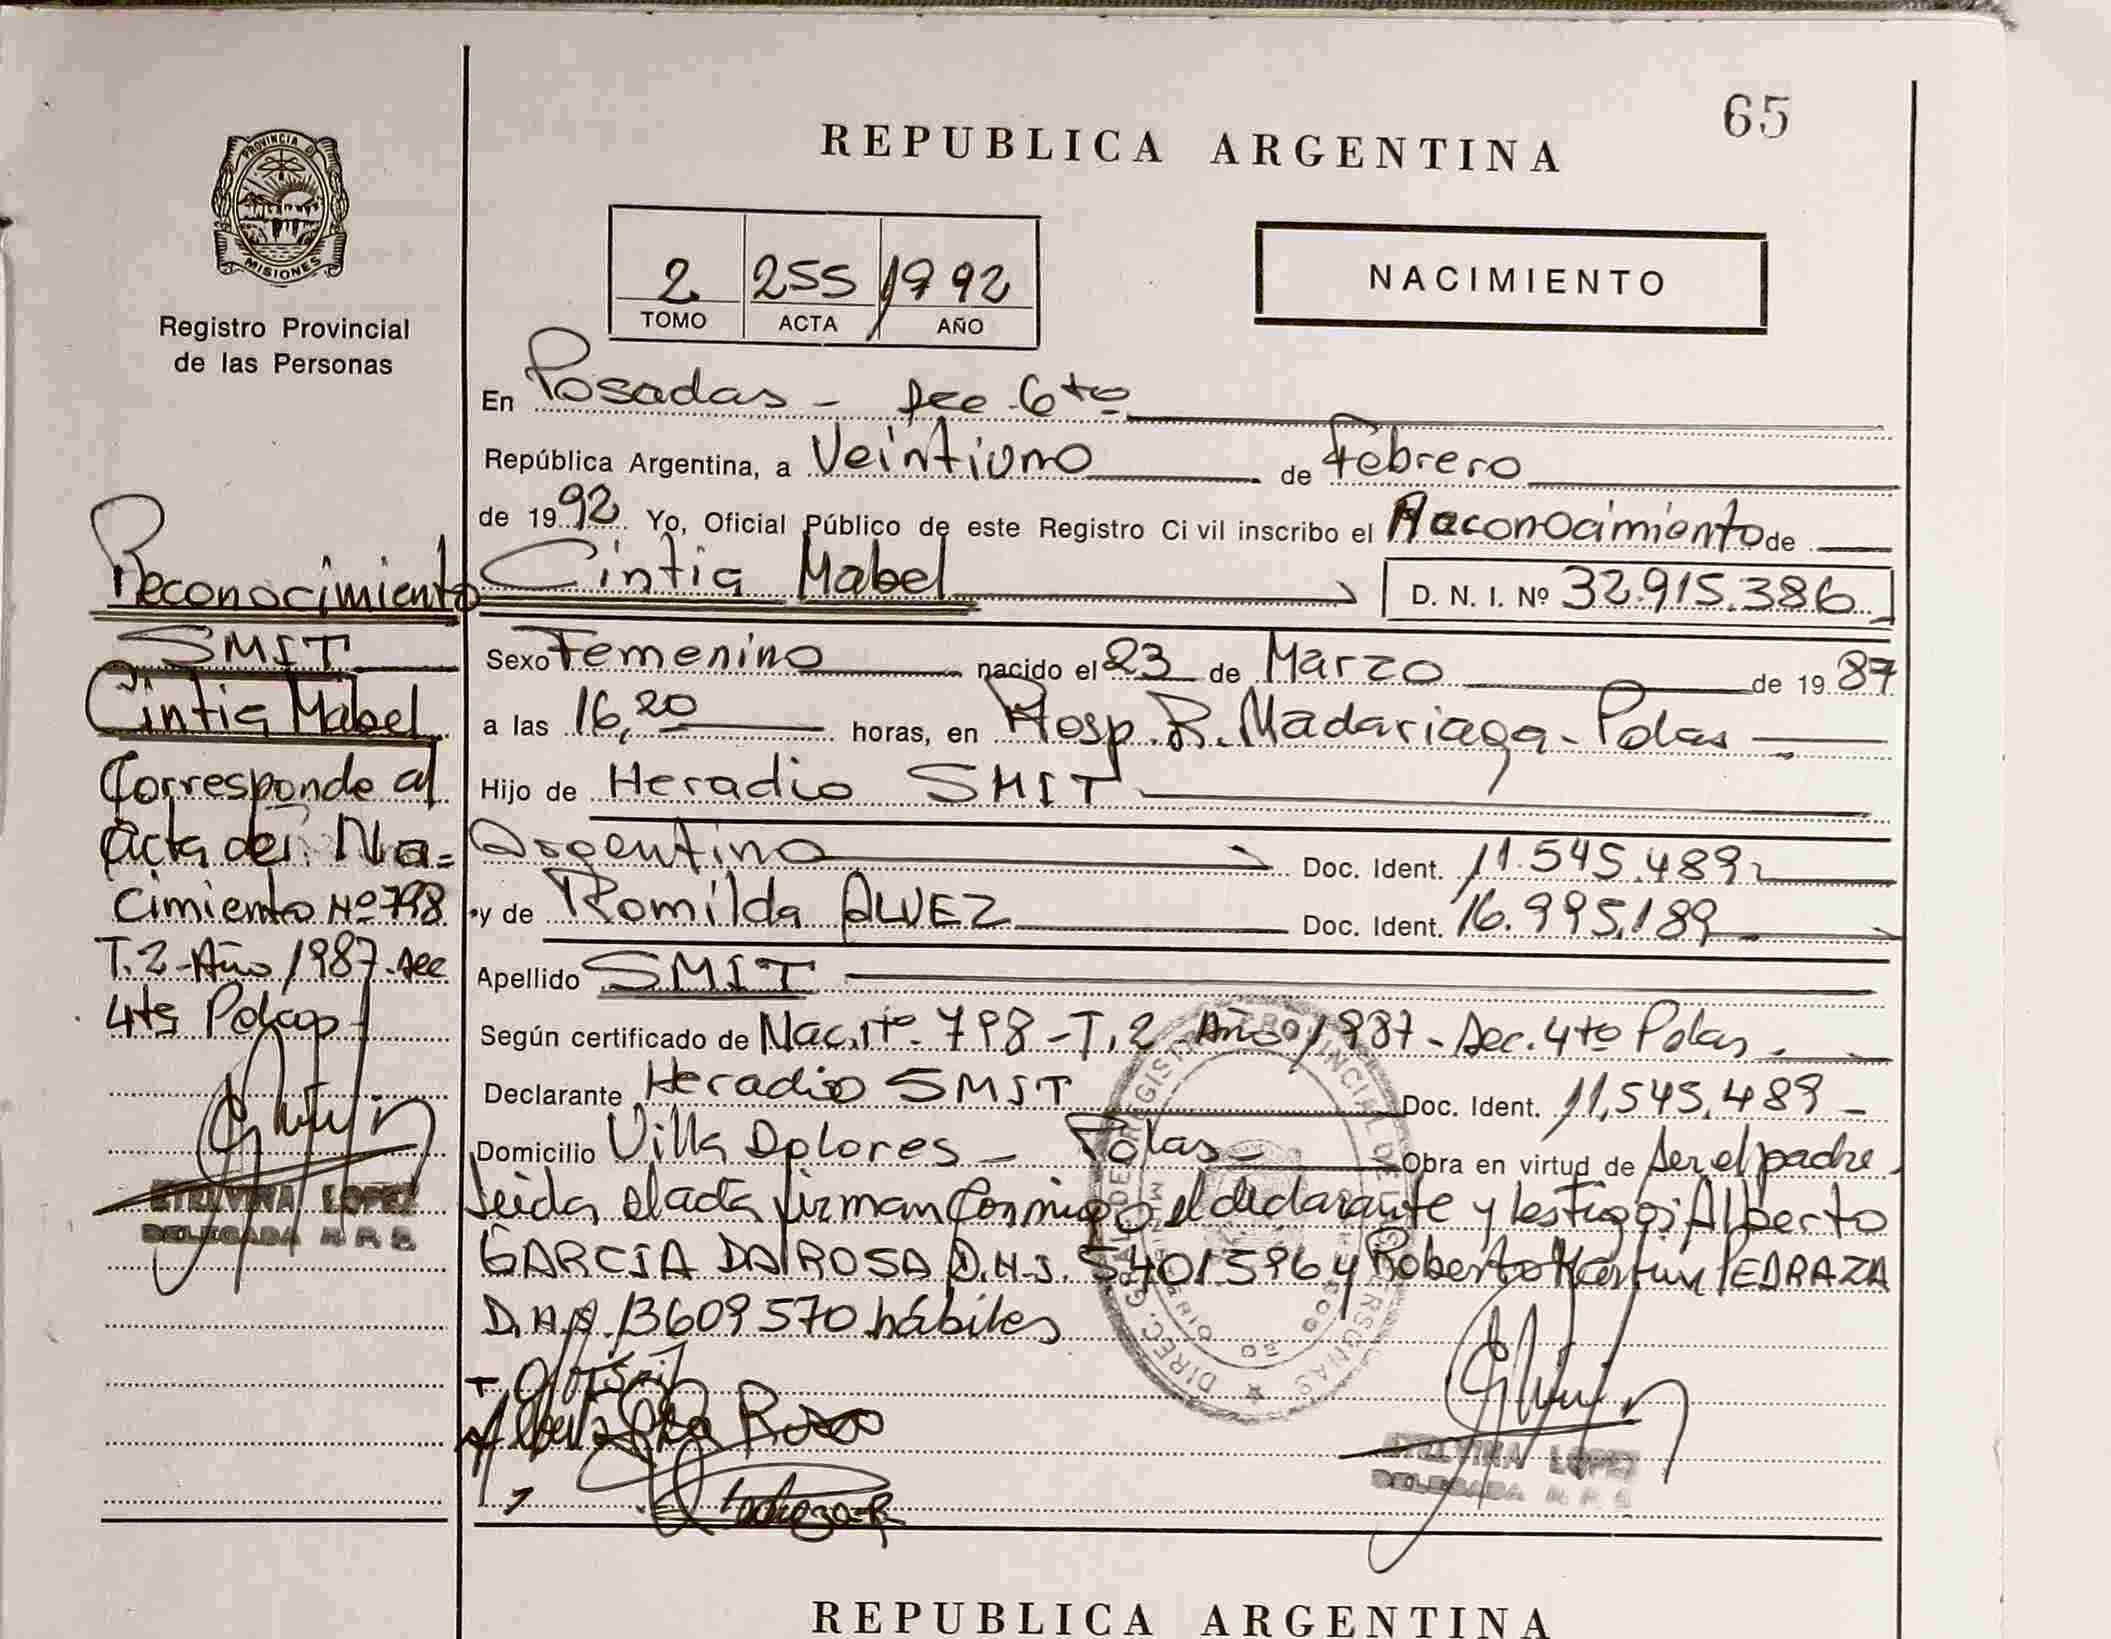 65
REPUBLICA ARGENTINA
PROVINCIA DE
MISIONES
Registro Provincial
de las Personas
2 255 1992
TOMO ACTA AÑO
NACIMIENTO
En Posadas - Sec. 6to
República Argentina, a Veintiuno de Febrero
de 1992 Yo, Oficial Público de este Registro Civil inscribo el Reconocimiento de
Cintia Mabel D. N. I. Nº 32.915.386
Sexo Femenino nacido el 23 de Marzo de 1987
a las 16,20 horas, en Hosp. R. Madariaga - Pdas
Hijo de Heradio SMIT
Argentino Doc. Ident. 11.545.489
y de Romilda ALVEZ Doc. Ident. 16.995.189
Apellido SMIT
Según certificado de Nac. Nº 798 - T. 2 Año 1987 - Sec. 4to Pdas.
Declarante Heradio SMIT Doc. Ident. 11,545,489
Domicilio Villa Dolores - Pdas - Obra en virtud de ser el padre
Leida el acta firman conmigo, el declarante y testigos; Alberto
GARCIA DA ROSA D.N.I. 5401596 y Roberto PEDRAZA
D.N.I. 13609570 hábiles
Reconocimiento
SMIT
Cintia Mabel
Corresponde al
acta de: Na=
cimiento Nº 798
T. 2 - Año 1987 - Sec
4ta Pdas
ETELVINA LOPEZ
DELEGADA
ETELVINA LOPEZ
DELEGADA
REPUBLICA ARGENTINA